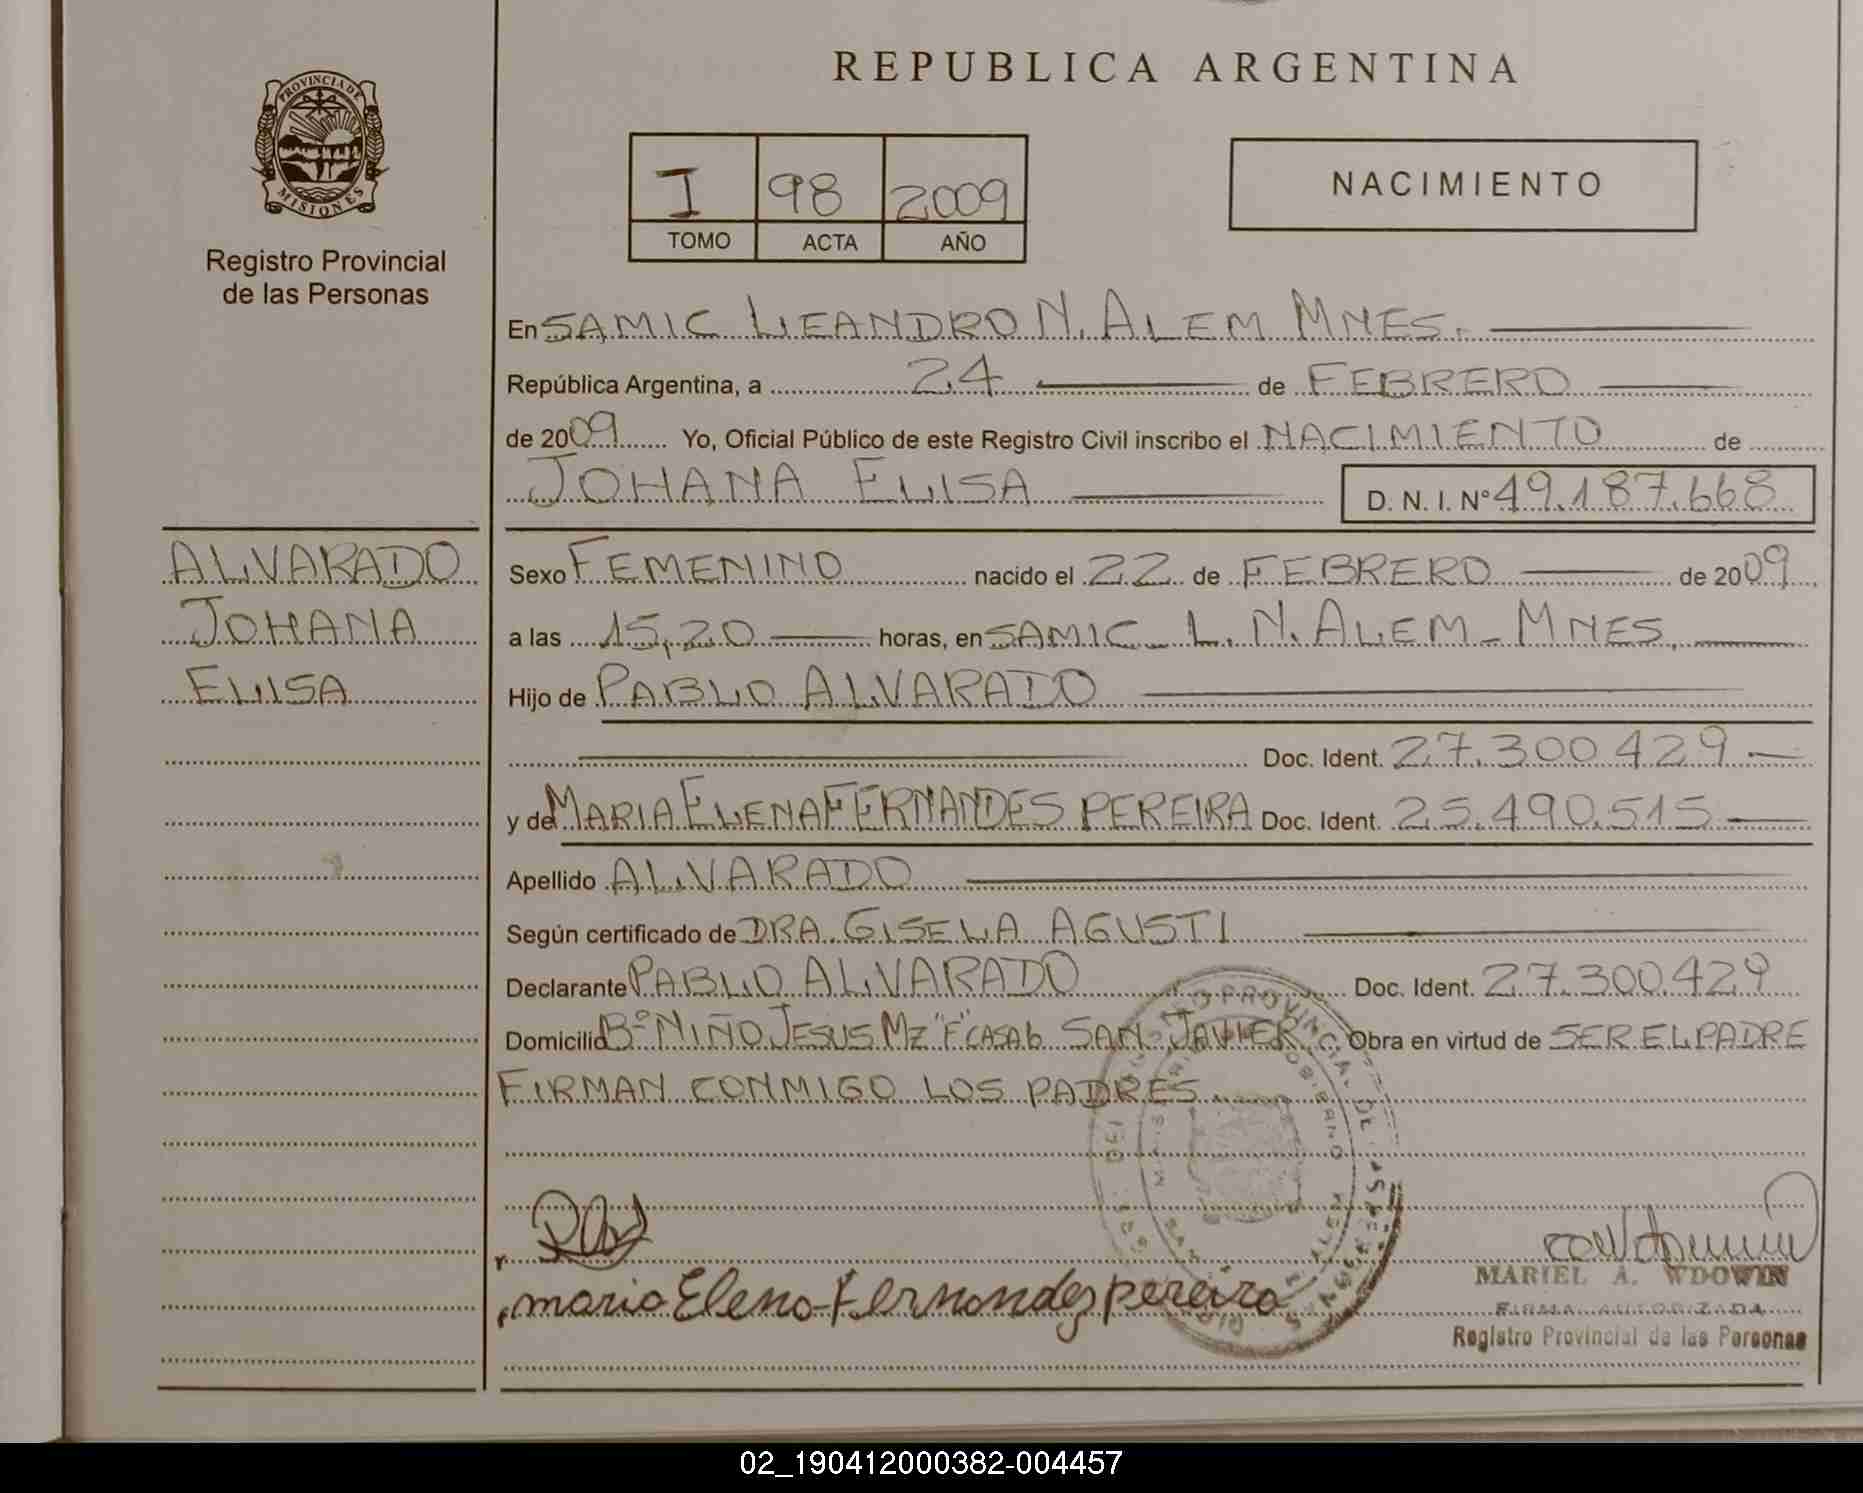 REPUBLICA ARGENTINA
PROVINCIA DE
MISIONES
Registro Provincial
de las Personas
I 98 2009
TOMO ACTA AÑO
NACIMIENTO
En SAMIC LEANDRO N. ALEM MNES.
República Argentina, a 24 de FEBRERO
de 2009 Yo, Oficial Público de este Registro Civil inscribo el NACIMIENTO de
JOHANA ELISA D. N. I. N° 49.187.668
ALVARADO
JOHANA
ELISA
Sexo FEMENINO nacido el 22 de FEBRERO de 2009
a las 15,20 horas, en SAMIC L. N. ALEM - MNES.
Hijo de PABLO ALVARADO
Doc. Ident. 27.300.429
y de MARIA ELENA FERNANDES PEREIRA Doc. Ident. 25.490.515
Apellido ALVARADO
Según certificado de DRA. GISELA AGUSTI
Declarante PABLO ALVARADO Doc. Ident. 27.300.429
Domicilio B° NIÑO JESUS MZ "F" CASA 6 SAN JAVIER Obra en virtud de SER EL PADRE
FIRMAN CONMIGO LOS PADRES
maria Elena Fernandes pereira
MARIEL A. WDOWIN
FIRMA AUTORIZADA
Registro Provincial de las Personas
02_190412000382-004457